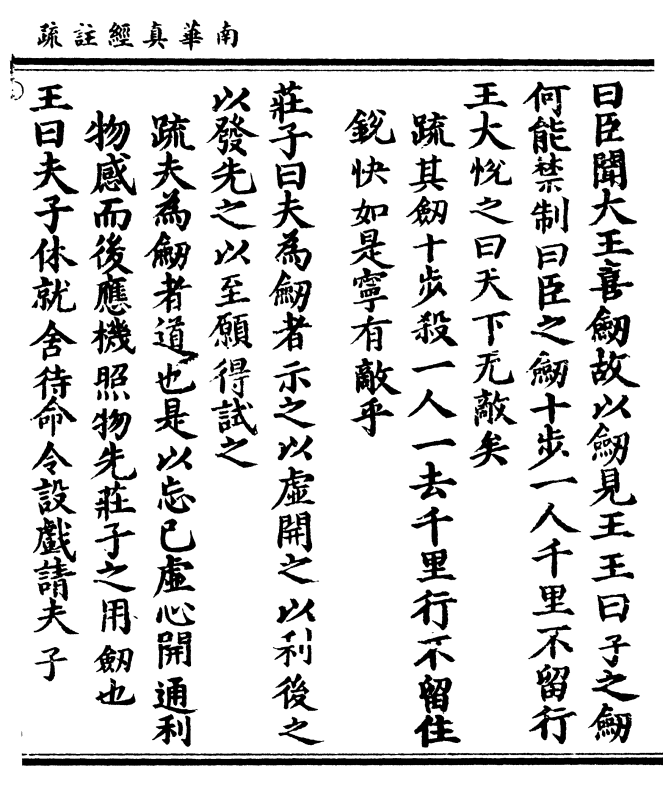 南華真經註疏
曰臣聞大王喜劒故以劒見王王曰子之劒
何能禁制曰臣之劒十步一人千里不留行
王大悅之曰天下无敵矣
疏其劒十步殺一人一去千里行不留住
銳快如是寧有敵乎
莊子曰夫為劒者示之以虛開之以利後之
以發先之以至願得試之
疏夫為劒者道也是以忘己虛心開通利
物感而後應機照物先莊子之用劒也
王曰夫子休就舍待命令設戲請夫子